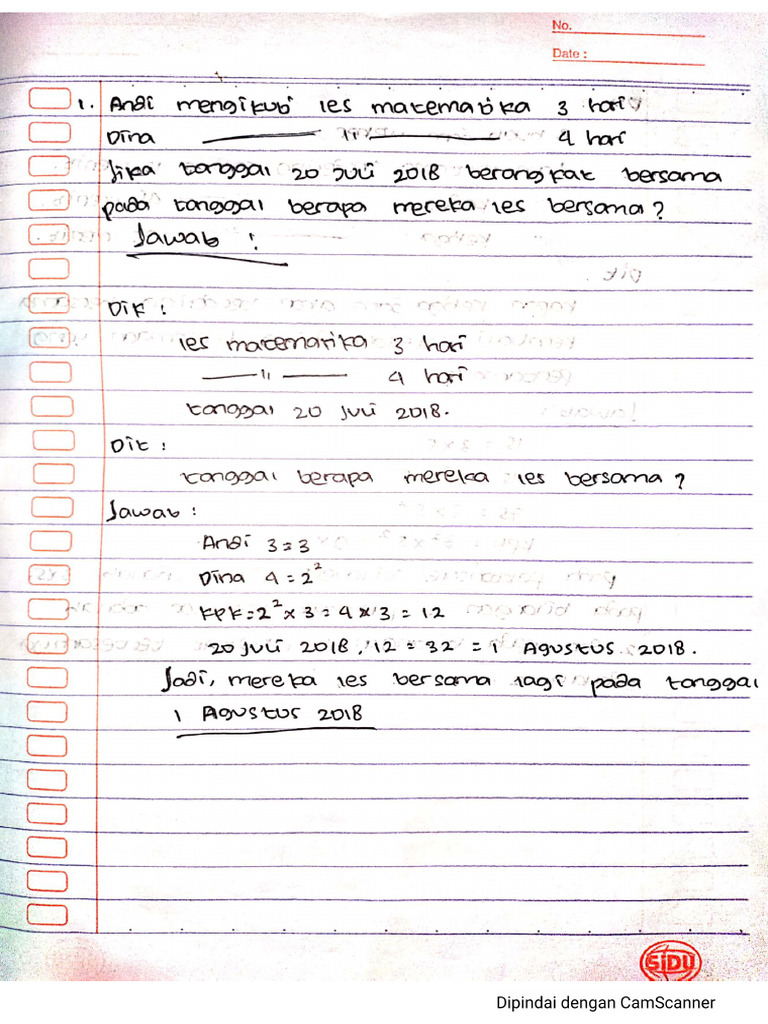 No.
Date :
1. Andi mengikuti les matematika 3 hari
Dina ——— 11 ——— 4 hari
Jika tanggal 20 Juli 2018 berangkat bersama
pada tanggal berapa mereka les bersama?
Jawab :
Dik :
les matematika 3 hari
——— 11 ——— 4 hari
tanggal 20 Juli 2018.
Dit :
tanggal berapa mereka les bersama?
Jawab :
Andi 3 = 3
Dina 4 = 2²
KPK = 2² x 3 = 4 x 3 = 12
20 Juli 2018, 12 = 32 = 1 Agustus 2018.
Jadi, mereka les bersama lagi pada tanggal
1 Agustus 2018
SIDU
Dipindai dengan CamScanner